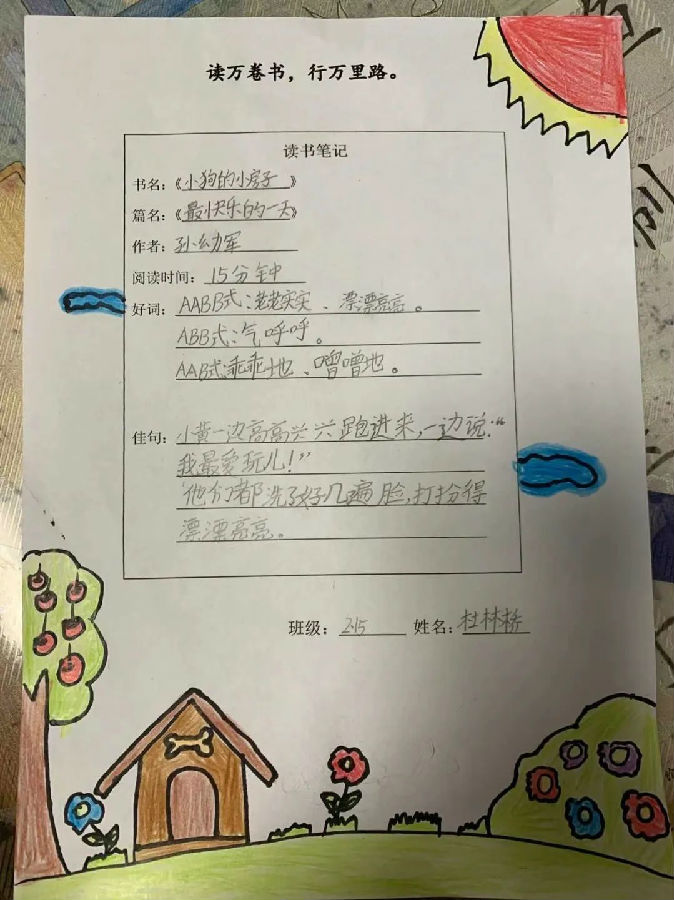 读万卷书，行万里路。
读书笔记
书名：《小狗的小房子》
篇名：《最快乐的一天》
作者：孙幼军
阅读时间：15分钟
好词：AABB式：老老实实、漂漂亮亮。
ABB式：气呼呼。
AAB式：乖乖地、噌噌地。
佳句：小黄一边高高兴兴跑进来，一边说：“
我最爱玩儿！”
他们都洗了好几遍脸，打扮得
漂漂亮亮。
班级：2.15 姓名：杜林桥